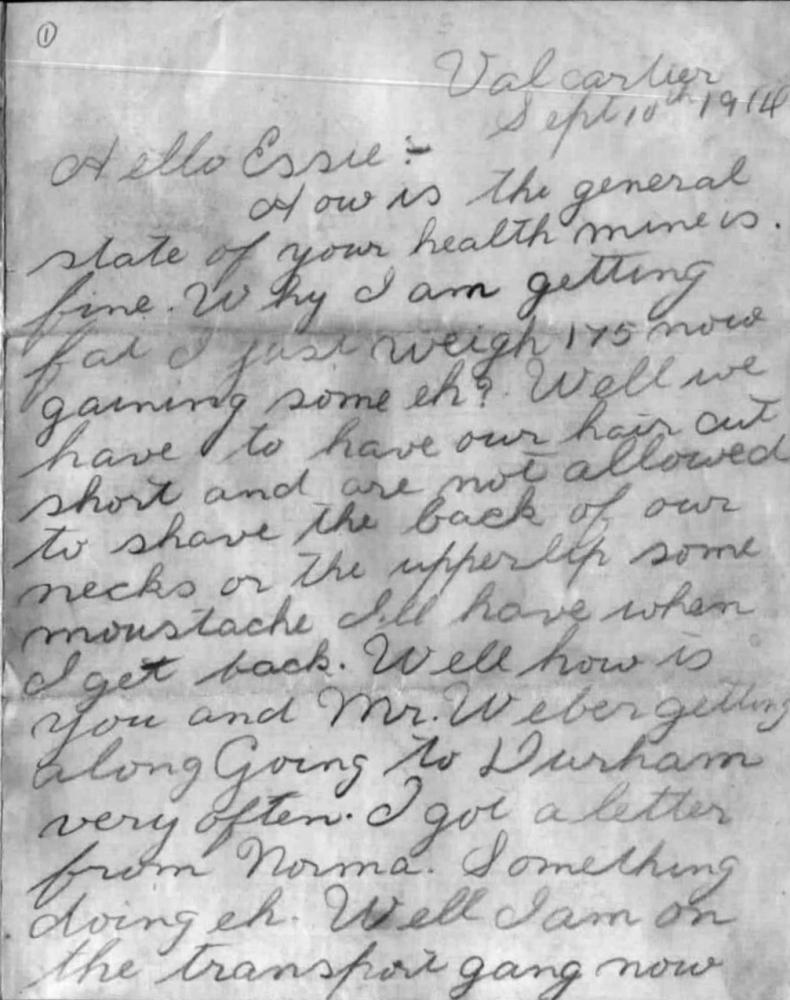 ①
Valcartier
Sept 10th 1914
Hello Essie :-
How is the general
state of your health mine is.
fine. Why I am getting
fat I just weigh 175 now
gaining some eh? Well we
have to have our hair cut
short and are not allowed
to shave the back of our
necks or the upper lip some
moustache I'll have when
I get back. Well how is
you and Mr. Weber getting
along Going to Durham
very often. I got a letter
from Norma. Something
doing eh. Well I am on
the transport gang now